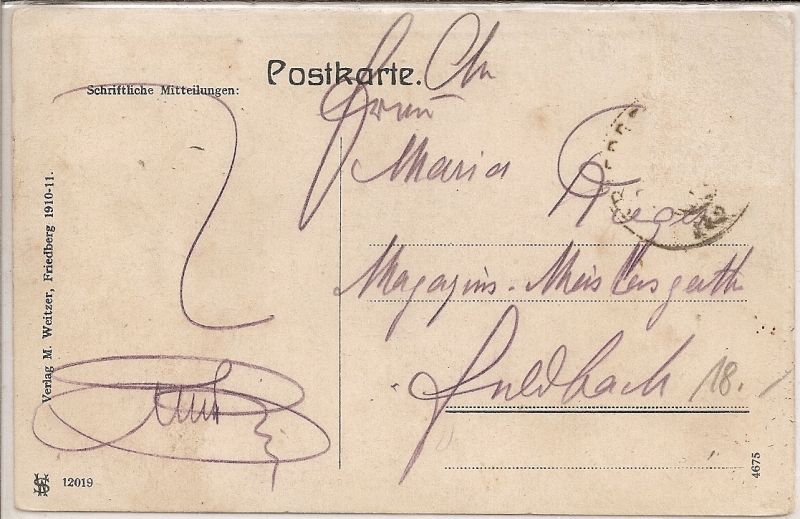 Postkarte.
Schriftliche Mitteilungen:
Frau
Maria
Rieger
Magazins-Meistersgattin
Feldbach 18.
Verlag M. Weitzer, Friedberg 1910-11.
12019
4675